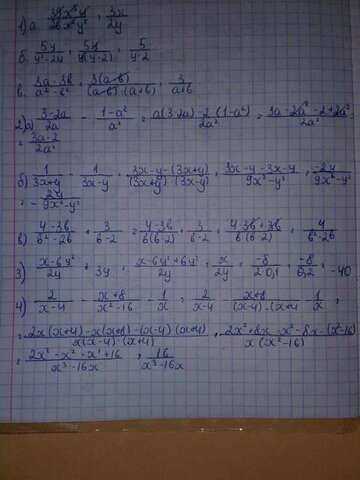 1) а 39x³y / 26x²y² = 3x / 2y
б. 5y / y²-2y = 5y / y(y-2) = 5 / y-2
в. 3a-3b / a²-b² = 3(a-b) / (a-b)·(a+b) = 3 / a+b
2) а) 3-2a / 2a - 1-a² / a² = a(3-2a)-2(1-a²) / 2a² = 3a-2a²-2+2a² / 2a² =
= 3a-2 / 2a²
б) 1 / 3x+y - 1 / 3x-y = 3x-y-(3x+y) / (3x+y)(3x-y) = 3x-y-3x-y / 9x²-y² = -2y / 9x²-y² =
= - 2y / 9x²-y²
в) 4-3b / b²-2b + 3 / b-2 = 4-3b / b(b-2) + 3 / b-2 = 4-3b+3b / b(b-2) = 4 / b²-2b
3) x-6y² / 2y + 3y = x-6y²+6y² / 2y = x / 2y = -8 / 2·0,1 = -8 / 0,2 = -40
4) 2 / x-4 - x+8 / x²-16 - 1 / x = 2 / x-4 - x+8 / (x-4)·(x+4) - 1 / x =
= 2x(x+4)-x(x+8)-(x-4)(x+4) / x(x-4)·(x+4) = 2x²+8x-x²-8x-(x²-16) / x(x²-16) =
= 2x²-x²-x²+16 / x³-16x = 16 / x³-16x